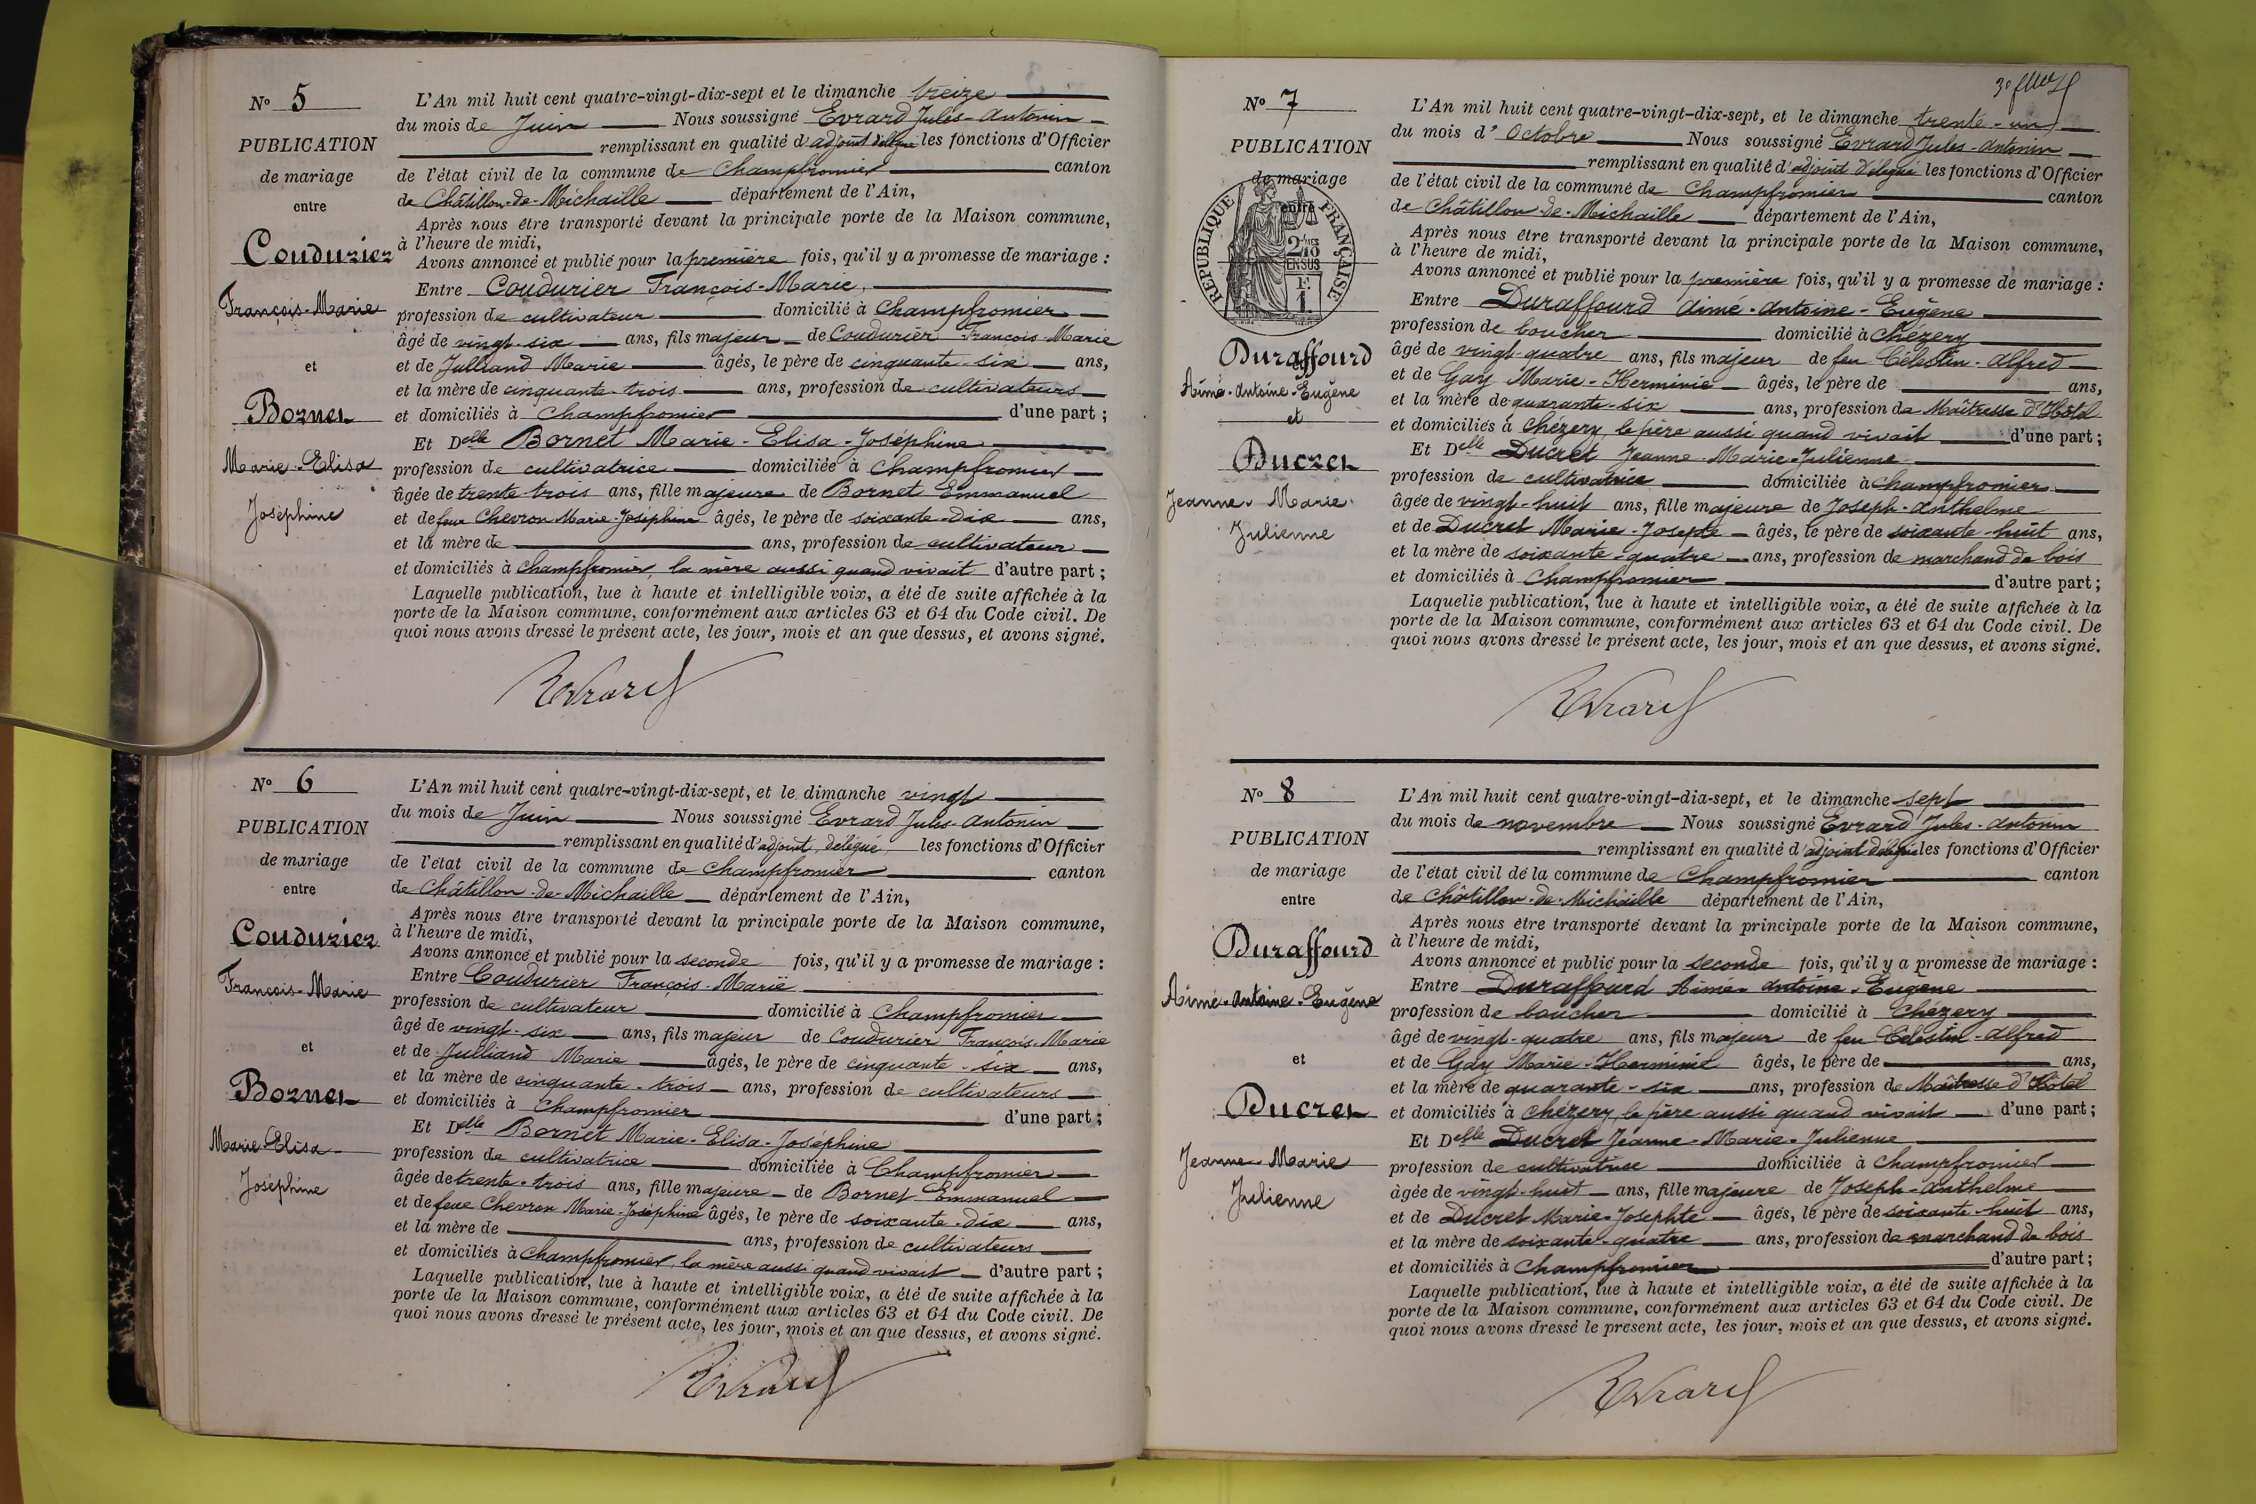 N° 5
PUBLICATION
de mariage
entre
Coudurier
François-Marie
et
Bornet
Marie-Elisa
Joséphine
L'An mil huit cent quatre-vingt-dix-sept et le dimanche treize
du mois de Juin Nous soussigné Evrard Jules-Antonin
remplissant en qualité d'adjoint délégué les fonctions d'Officier
de l'état civil de la commune de Champfromier canton
de Châtillon-de-Michaille département de l'Ain,
Après nous être transporté devant la principale porte de la Maison commune,
à l'heure de midi,
Avons annoncé et publié pour la première fois, qu'il y a promesse de mariage :
Entre Coudurier François-Marie,
profession de cultivateur domicilié à Champfromier
âgé de vingt-six ans, fils majeur de Coudurier François-Marie
et de Julliand Marie âgés, le père de cinquante-six ans,
et la mère de cinquante-trois ans, profession de cultivateurs
et domiciliés à Champfromier d'une part ;
Et Delle Bornet Marie-Elisa-Joséphine
profession de cultivatrice domiciliée à Champfromier
âgée de trente trois ans, fille majeure de Bornet Emmanuel
et de feue Chevron Marie-Joséphine âgés, le père de soixante-dix ans,
et la mère de ans, profession de cultivateur
et domiciliés à Champfromier, la mère aussi quand vivait d'autre part ;
Laquelle publication, lue à haute et intelligible voix, a été de suite affichée à la
porte de la Maison commune, conformément aux articles 63 et 64 du Code civil. De
quoi nous avons dressé le présent acte, les jour, mois et an que dessus, et avons signé.
Evrard
N° 6
PUBLICATION
de mariage
entre
Coudurier
François-Marie
et
Bornet
Marie-Elisa
Joséphine
L'An mil huit cent quatre-vingt-dix-sept, et le dimanche vingt
du mois de Juin Nous soussigné Evrard Jules-Antonin
remplissant en qualité d'adjoint délégué les fonctions d'Officier
de l'état civil de la commune de Champfromier canton
de Châtillon-de-Michaille département de l'Ain,
Après nous être transporté devant la principale porte de la Maison commune,
à l'heure de midi,
Avons annoncé et publié pour la seconde fois, qu'il y a promesse de mariage :
Entre Coudurier François-Marie
profession de cultivateur domicilié à Champfromier
âgé de vingt-six ans, fils majeur de Coudurier François-Marie
et de Julliand Marie âgés, le père de cinquante-six ans,
et la mère de cinquante-trois ans, profession de cultivateurs
et domiciliés à Champfromier d'une part ;
Et Delle Bornet Marie-Elisa-Joséphine
profession de cultivatrice domiciliée à Champfromier
âgée de trente-trois ans, fille majeure de Bornet Emmanuel
et de feue Chevron Marie-Joséphine âgés, le père de soixante-dix ans,
et la mère de ans, profession de cultivateurs
et domiciliés à Champfromier, la mère aussi quand vivait d'autre part ;
Laquelle publication, lue à haute et intelligible voix, a été de suite affichée à la
porte de la Maison commune, conformément aux articles 63 et 64 du Code civil. De
quoi nous avons dressé le présent acte, les jour, mois et an que dessus, et avons signé.
Evrard
N° 7
PUBLICATION
de mariage
entre
RÉPUBLIQUE FRANÇAISE
2/10 EN SUS
1
Duraffourd
Aimé-Antoine-Eugène
et
Ducret
Jeanne-Marie-
Julienne
L'An mil huit cent quatre-vingt-dix-sept, et le dimanche trente-un
du mois d'Octobre Nous soussigné Evrard Jules-Antonin
remplissant en qualité d'adjoint délégué les fonctions d'Officier
de l'état civil de la commune de Champfromier canton
de Châtillon-de-Michaille département de l'Ain,
Après nous être transporté devant la principale porte de la Maison commune,
à l'heure de midi,
Avons annoncé et publié pour la première fois, qu'il y a promesse de mariage :
Entre Duraffourd Aimé-Antoine-Eugène
profession de boucher domicilié à Chézery
âgé de vingt-quatre ans, fils majeur de feu Célestin-Alfred
et de Gay Marie-Herminie âgés, le père de ans,
et la mère de quarante-six ans, profession de Maîtresse d'Hôtel
et domiciliés à Chézery, le père aussi quand vivait d'une part ;
Et Delle Ducret Jeanne-Marie-Julienne
profession de cultivatrice domiciliée à Champfromier
âgée de vingt-huit ans, fille majeure de Joseph-Anthelme
et de Ducret Marie-Josepte âgés, le père de soixante-huit ans,
et la mère de soixante-quatre ans, profession de marchand de bois
et domiciliés à Champfromier d'autre part ;
Laquelle publication, lue à haute et intelligible voix, a été de suite affichée à la
porte de la Maison commune, conformément aux articles 63 et 64 du Code civil. De
quoi nous avons dressé le présent acte, les jour, mois et an que dessus, et avons signé.
Evrard
N° 8
PUBLICATION
de mariage
entre
Duraffourd
Aimé-Antoine-Eugène
et
Ducret
Jeanne-Marie
Julienne
L'An mil huit cent quatre-vingt-dia-sept, et le dimanche sept
du mois de novembre Nous soussigné Evrard Jules-Antonin
remplissant en qualité d'adjoint délégué les fonctions d'Officier
de l'état civil de la commune de Champfromier canton
de Châtillon-de-Michaille département de l'Ain,
Après nous être transporté devant la principale porte de la Maison commune,
à l'heure de midi,
Avons annoncé et publié pour la seconde fois, qu'il y a promesse de mariage :
Entre Duraffourd Aimé-Antoine-Eugène
profession de boucher domicilié à Chézery
âgé de vingt-quatre ans, fils majeur de feu Célestin-Alfred
et de Gay Marie-Herminie âgés, le père de ans,
et la mère de quarante-six ans, profession de Maîtresse d'Hôtel
et domiciliés à Chézery, le père aussi quand vivait d'une part ;
Et Delle Ducret Jeanne-Marie-Julienne
profession de cultivatrice domiciliée à Champfromier
âgée de vingt-huit ans, fille majeure de Joseph-Anthelme
et de Ducret Marie-Josephte âgés, le père de soixante-huit ans,
et la mère de soixante-quatre ans, profession de marchand de bois
et domiciliés à Champfromier d'autre part ;
Laquelle publication, lue à haute et intelligible voix, a été de suite affichée à la
porte de la Maison commune, conformément aux articles 63 et 64 du Code civil. De
quoi nous avons dressé le présent acte, les jour, mois et an que dessus, et avons signé.
Evrard